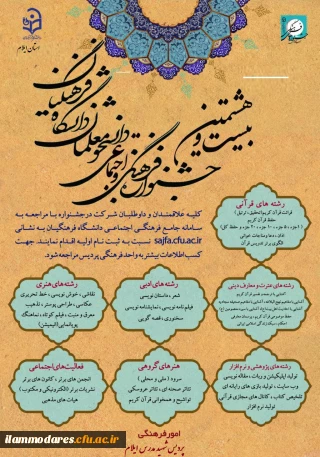 استان ایلام
بیست و هشتمین
جشنواره فرهنگی و اجتماعی دانشجو معلمان دانشگاه فرهنگیان
کلیه علاقمندان و داوطلبان شرکت در جشنواره با مراجعه به
سامانه جامع فرهنگی اجتماعی دانشگاه فرهنگیان به نشانی
sajfa.cfu.ac.ir نسبت به ثبت نام اولیه اقدام نمایند. جهت
کسب اطلاعات بیشتر به واحد فرهنگی پردیس مراجعه شود.
رشته های قرآنی
حفظ قرآن کریم
الگوی برتر تدریس قرآن
رشته های عترت و معارف دینی
رشته های ادبی
شعر، داستان نویسی
فیلم نامه نویسی، نمایشنامه نویسی
سخنوری، قصه گویی
رشته های هنری
نقاشی، خوش نویسی، خط تحریری
عکاسی، طراحی پوستر، تذهیب
معرق و منبت، فیلم کوتاه، نماهنگ
پویانمایی (انیمیشن)
رشته های پژوهشی و نرم افزار
تولید اپلیکیشن و ربات، مقاله نویسی
وب سایت، تولید بازی های رایانه ای
تلخیص کتاب، کانال های مجازی قرآنی
تولید نرم افزار
هنرهای گروهی
سرود (ملی و محلی)
تئاتر صحنه ای، تئاتر عروسکی
تواشیح و همخوانی قرآن کریم
فعالیت های اجتماعی
انجمن های برتر، کانون های برتر
نشریات برتر (الکترونیکی و مکتوب)
هیات های مذهبی
امور فرهنگی
پردیس شهید مدرس ایلام
ilammodares.cfu.ac.ir